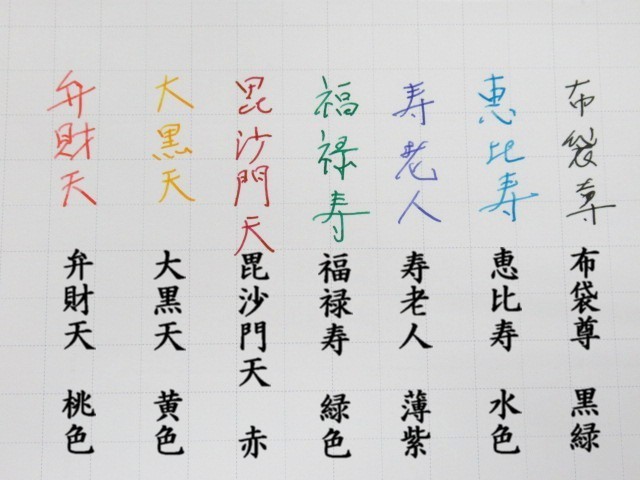 布袋尊
恵比寿
寿老人
福禄寿
毘沙門天
大黒天
弁財天
布袋尊 黒緑
恵比寿 水色
寿老人 薄紫
福禄寿 緑色
毘沙門天 赤
大黒天 黄色
弁財天 桃色